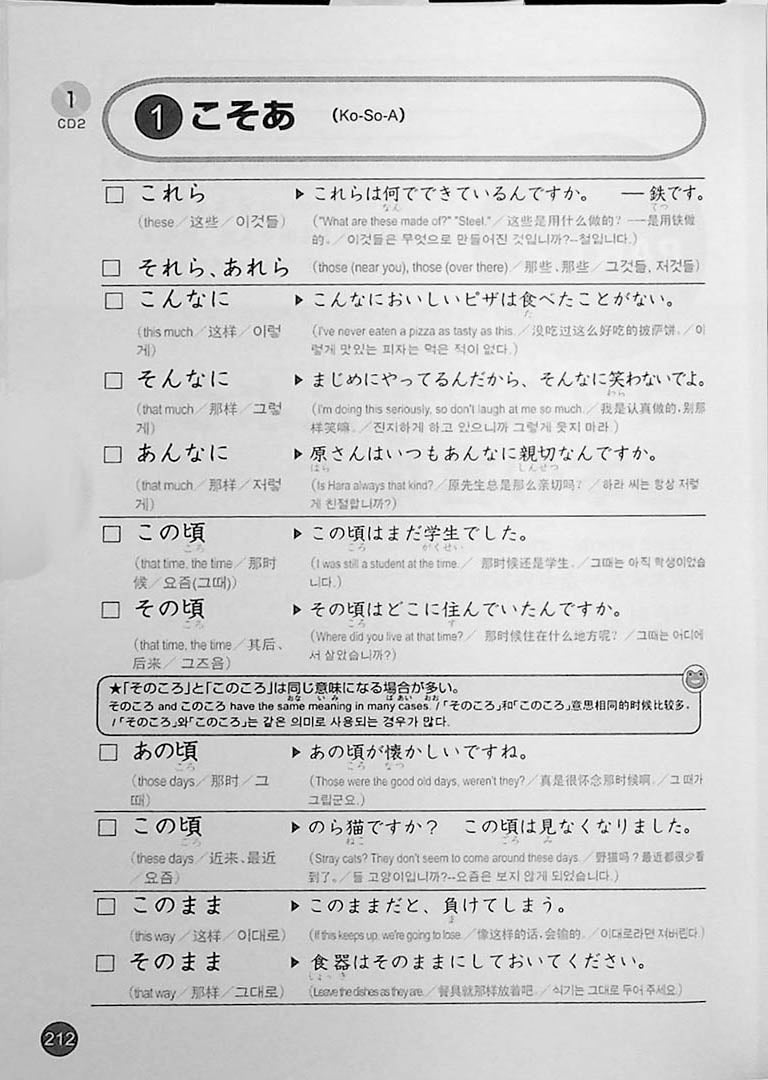 1
CD2
1 こそあ (Ko-So-A)
□ これら ▶ これらは何でできているんですか。 ― 鉄です。
なん てつ
(these／这些／이것들) ("What are these made of?" "Steel."／这些是用什么做的？ ―是用铁做
的。／이것들은 무엇으로 만들어진 것입니까?--철입니다.)
□ それら、あれら (those (near you), those (over there)／那些、那些／그것들, 저것들)
□ こんなに ▶ こんなにおいしいピザは食べたことがない。
た
(this much／这样／이렇 (I've never eaten a pizza as tasty as this.／没吃过这么好吃的披萨饼。／이
게) 렇게 맛있는 피자는 먹은 적이 없다.)
□ そんなに ▶ まじめにやってるんだから、そんなに笑わないでよ。
わら
(that much／那样／그렇 (I'm doing this seriously, so don't laugh at me so much.／我是认真做的，别那
게) 样笑嘛。／진지하게 하고 있으니까 그렇게 웃지 마라.)
□ あんなに ▶ 原さんはいつもあんなに親切なんですか。
はら しんせつ
(that much／那样／저렇 (Is Hara always that kind?／原先生总是那么亲切吗？／하라 씨는 항상 저렇
게) 게 친절합니까?)
□ この頃 ▶ この頃はまだ学生でした。
ころ ころ がくせい
(that time, the time／那时 (I was still a student at the time.／ 那时候还是学生。／그때는 아직 학생이었습
候／요즘(그때)) 니다.)
□ その頃 ▶ その頃はどこに住んでいたんですか。
ころ ころ す
(that time, the time／其后、 (Where did you live at that time?／ 那时候住在什么地方呢？／그때는 어디에
后来／그즈음) 서 살았습니까?)
★「そのころ」と「このころ」は同じ意味になる場合が多い。
おな いみ ばあい おお
そのころ and このころ have the same meaning in many cases.／「そのころ」和「このころ」意思相同的时候比较多。
／「そのころ」와「このころ」는 같은 의미로 사용되는 경우가 많다.
□ あの頃 ▶ あの頃が懐かしいですね。
ころ ころ なつ
(those days／那时／그 (Those were the good old days, weren't they?／真是很怀念那时候啊。／그 때가
때) 그립군요.)
□ この頃 ▶ のら猫ですか？ この頃は見なくなりました。
ごろ ねこ ごろ み
(these days／近来、最近 (Stray cats? They don't seem to come around these days.／野猫吗？最近都很少看
／요즘) 到了。／들 고양이입니까?--요즘은 보지 않게 되었습니다.)
□ このまま ▶ このままだと、負けてしまう。
ま
(this way／这样／이대로) (If this keeps up, we're going to lose.／像这样的话，会输的。／이대로라면 져버린다.)
□ そのまま ▶ 食器はそのままにしておいてください。
しょっき
(that way／那样／그대로) (Leave the dishes as they are.／餐具就那样放着吧。／식기는 그대로 두어 주세요.)
212